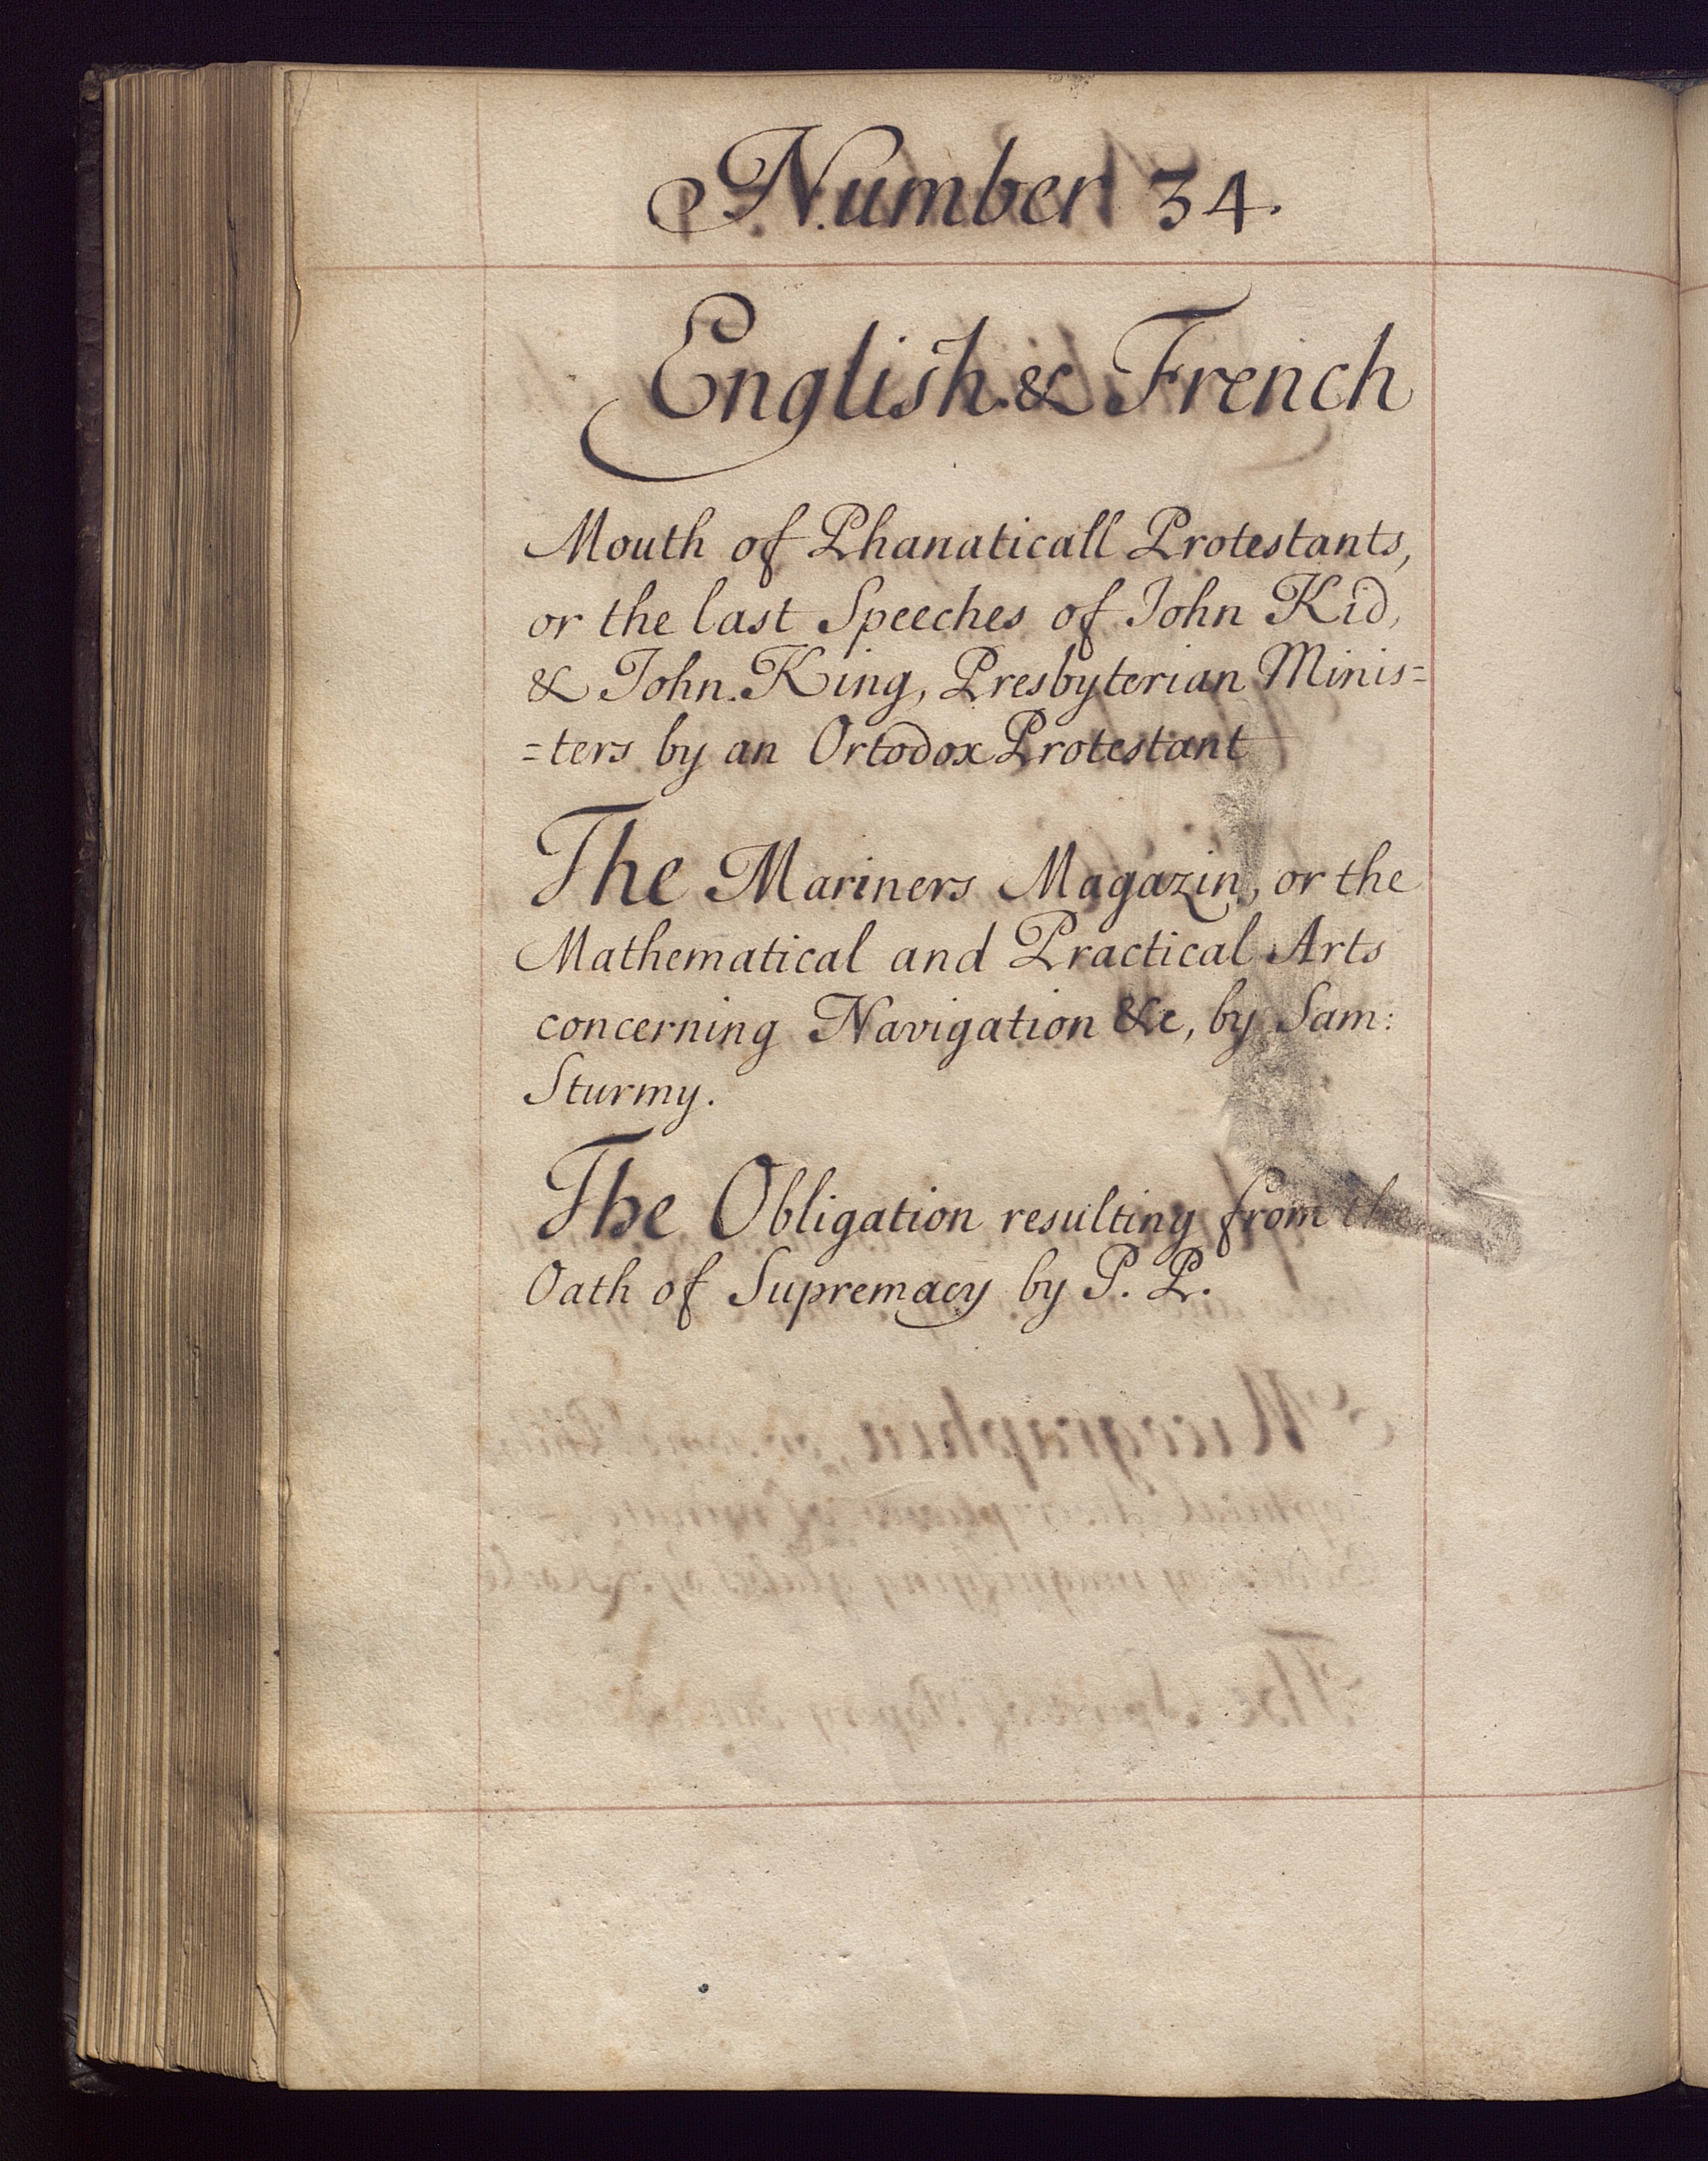 Number 34.
English & French
Mouth of Phanaticall Protestants,
or the last Speeches of John Kid,
& John King, Presbyterian Minis=
=ters by an Ortodox Protestant
The Mariners Magazin, or the
Mathematical and Practical Arts
concerning Navigation &c, by Sam:
Sturmy.
The Obligation resulting from the
Oath of Supremacy by P. P.